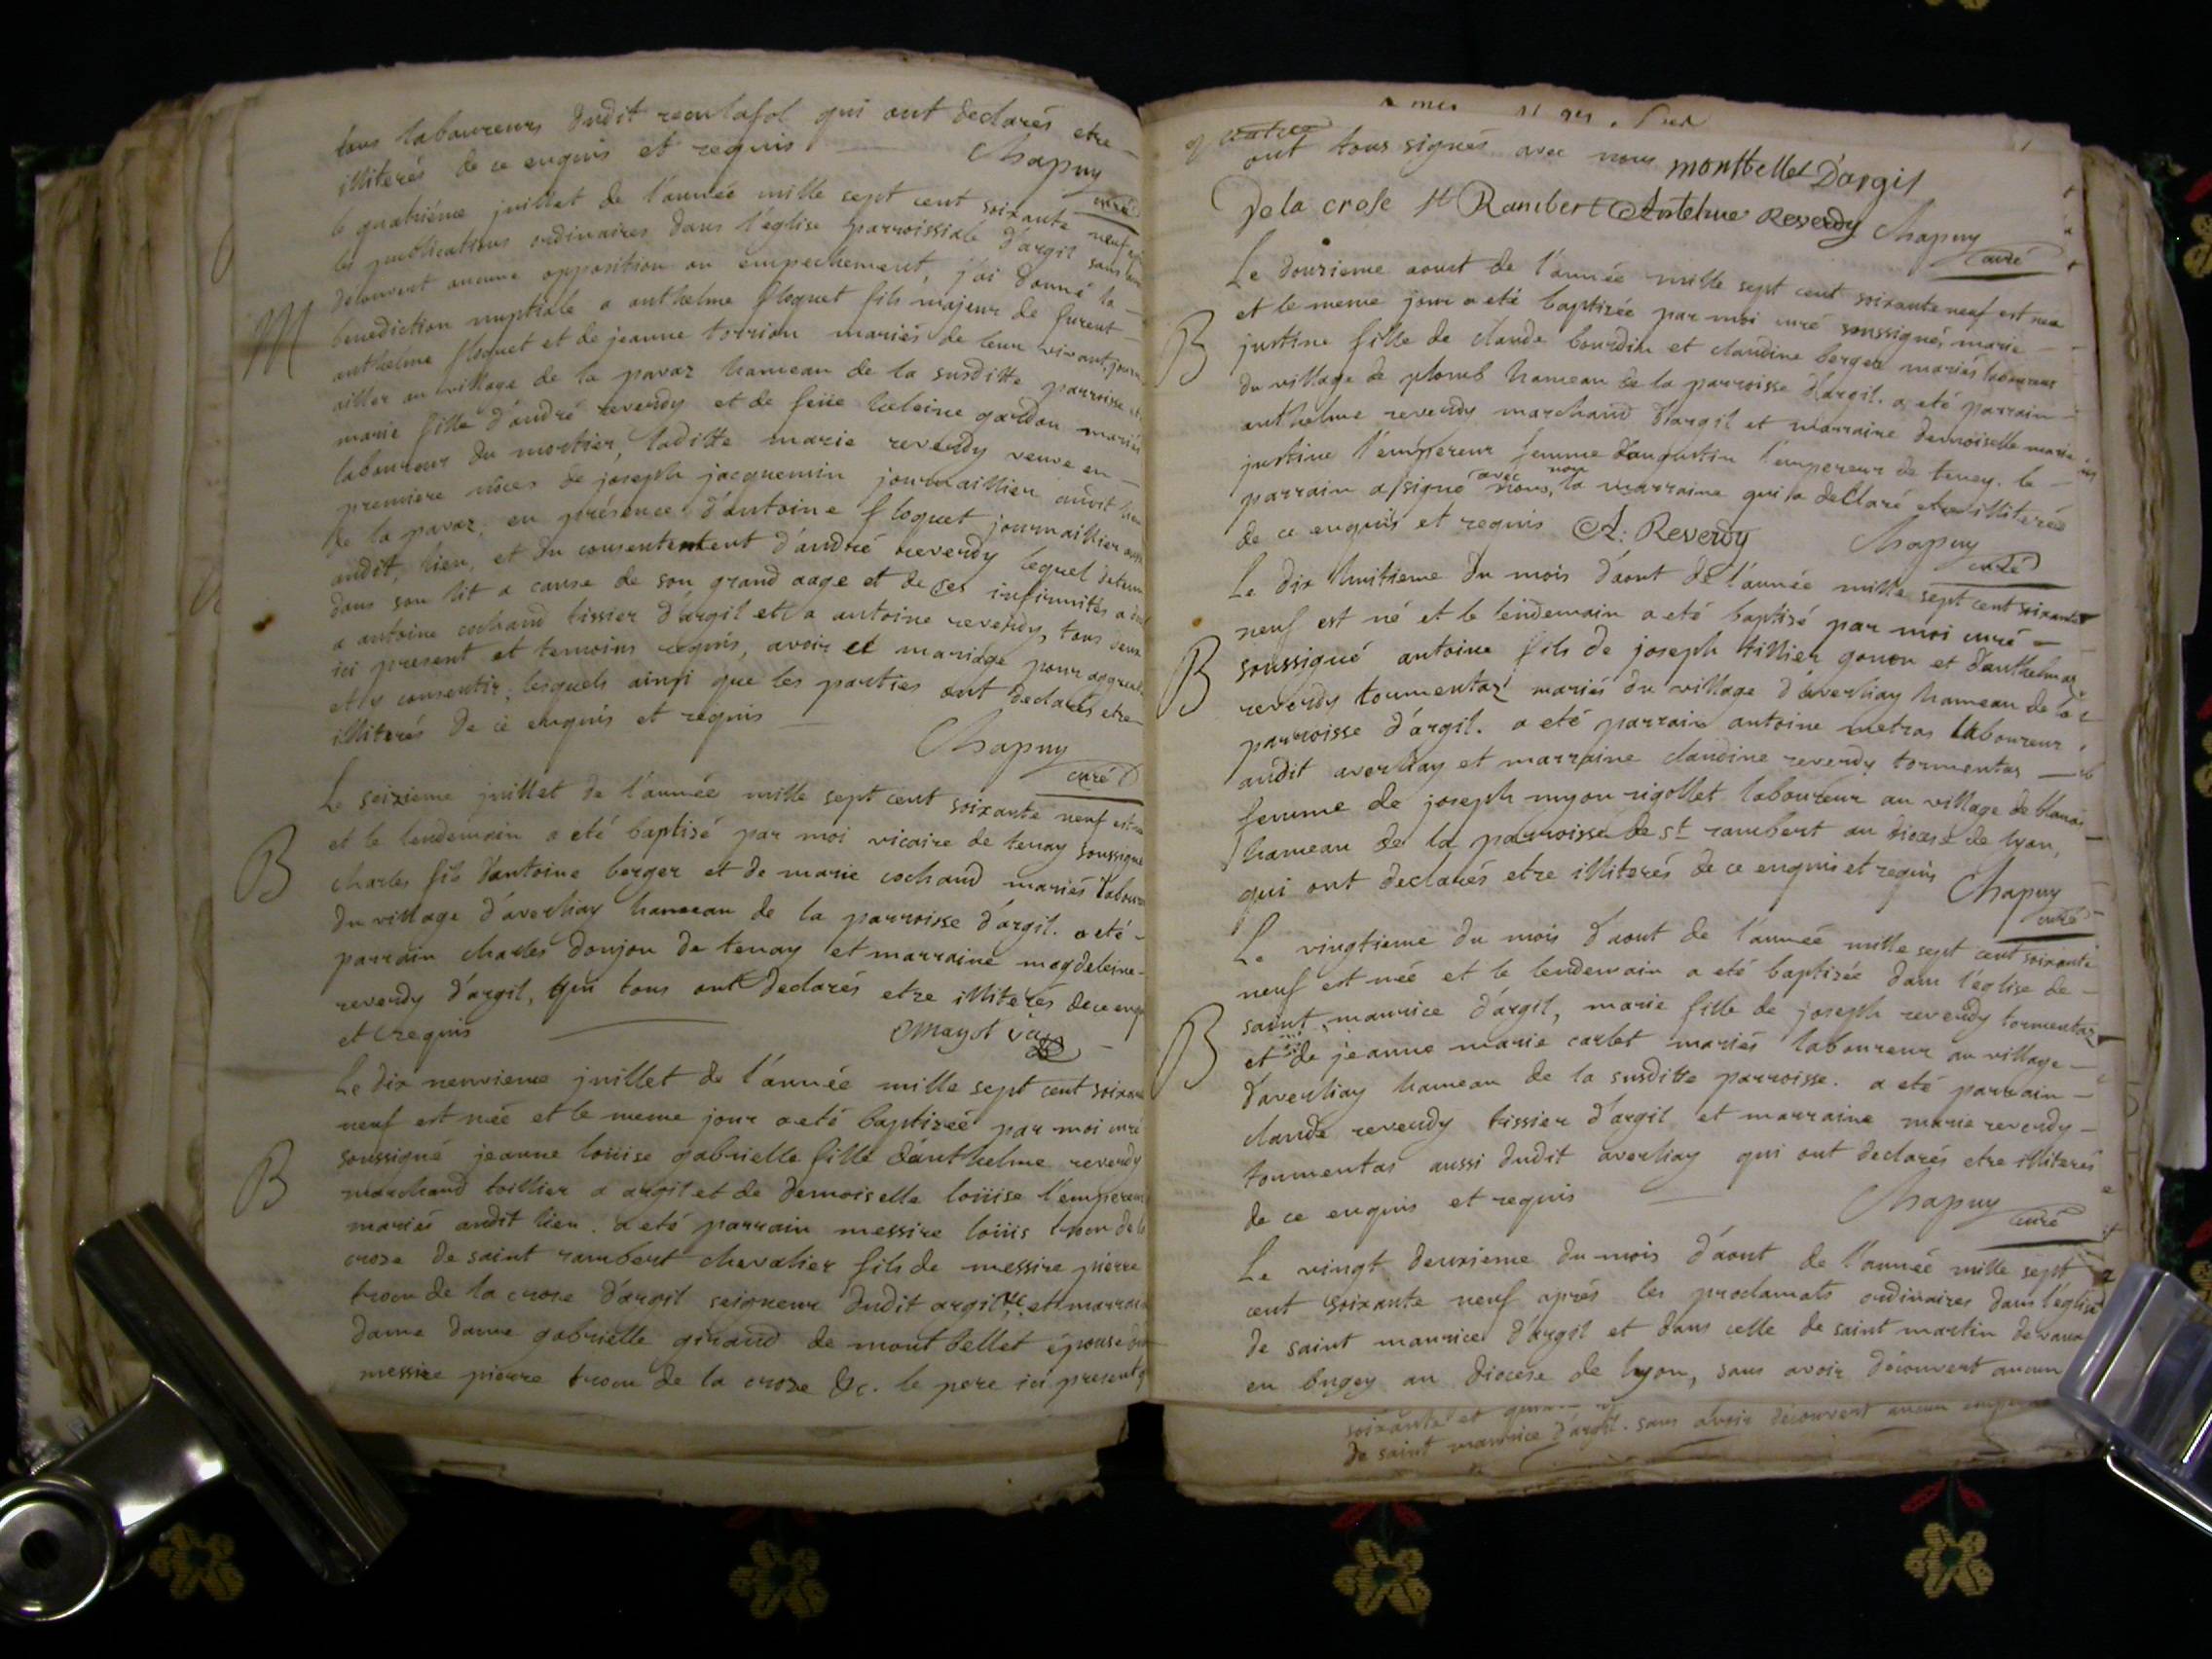 tous laboureurs dudit reculafol qui ont declarés etre
illiterés de ce enquis et requis
Chapuy
curé
le quatriéme juillet de l'année mille sept cent soixante neuf
les publications ordinaires dans l'église parroissiale d'argil sans
decouvert aucune opposition ou empechement, j'ai donné la
M
benediction nuptiale a anthelme floquet fils majeur de furent
anthelme floquet et de jeanne torrion mariés de leur vivant,
ailler au village de la pavaz hameau de la susditte parroisse et
marie fille d'andré reverdy et de feüe heleine gardon mariés
laboureur du mortier, laditte marie reverdy veuve en
premiere nôces de joseph jacquemin journaillier audit
de la pavaz, en présence d'antoine floquet journaillier
audit, lieu, et du consentement d'andré reverdy lequel
dans son lit a cause de son grand aage et de ses infirmités a
a antoine cochand tissier d'argil et a antoine reverdy, tous deux
ici present et temoins requis, avoir et mariage pour
et y consentir; lesquels ainsi que les parties ont declarés etre
illiterés de ce enquis et requis
Chapuy
curé
Le seixieme juillet de l'année mille sept cent soixante neuf est
et le lendemain a eté baptisé par moi vicaire de tenay soussigné
B
charles fils d'antoine berger et de marie cochand mariés
du village d'averliay hameau de la parroisse d'argil. a eté
parrain charles donjon de tenay et marraine magdeleine
reverdy d'argil, qui tous ont declarés etre illiterés de ce
et requis
Mayot vic
Le dix neuvieme juillet de l'année mille sept cent
neuf est née et le meme jour a eté baptizée par moi curé
B
soussigné jeanne loüise gabrielle fille d'anthelme reverdy
marchand toillier a argil et de demoiselle loüise l'empereur
mariés audit lieu. a eté parrain messire loüis trocu de la
croze de saint rambert chevalier fils de messire pierre
trocu de la croze d'argil seigneur dudit argil &c. et
dame dame gabrielle giraud de montbellet épouse
messire pierre trocu de la croze &c. le pere ici present
ont tous signés avec nous montbellet D'argil
De la crose st Rambert Antelme Reverdy Chapuy
curé
Le douzieme aoust de l'année mille sept cent soixante neuf est née
et le meme jour a eté baptizée par moi curé soussigné, marie
B
justine fille de claude bourdin et claudine berger mariés laboureurs
du village de plomb hameau de la parroisse d'argil. a eté parrain
anthelme reverdy marchand d'argil et marraine demoiselle marie
justine l'empereur femme d'augustin l'empereur de tenay. le
avec nous
parrain a signé nous, la marraine qui a declaré etre illiterée
de ce enquis et requis A: Reverdy Chapuy
curé
Le dix huitieme du mois d'aout de l'année mille sept cent soixante
neuf est né et le lendemain a eté baptisé par moi curé
B
soussigné antoine fils de joseph tillier gonon et d'anthelmaz
reverdy tourmentaz mariés du village d'averliay hameau de la
parroisse d'argil. a eté parrain antoine metras laboureur
audit averliay et marraine claudine reverdy tormentas
femme de joseph myon rigollet laboureur au village de
hameau de la parroisse de st rambert au diocese de lyon,
qui ont declarés etre illiterés de ce enquis et requis Chapuy
curé
Le vingtieme du mois d'aout de l'année mille sept cent soixante
neuf est née et le lendemain a eté baptizée dans l'église de
B
saint maurice d'argil, marie fille de joseph reverdy tormentaz
et de jeanne marie carlet mariés laboureur au village
d'averliay hameau de la susditte parroisse. a eté parrain
claude reverdy tissier d'argil et marraine marie reverdy
tourmentas aussi dudit averliay qui ont declarés etre illiterés
de ce enquis et requis Chapuy
curé
Le vingt deuxieme du mois d'aout de l'année mille sept
cent soixante neuf aprés les proclamats ordinaires dans l'église
de saint maurice d'argil et dans celle de saint martin de
en bugey au diocese de lyon, sans avoir découvert aucun
soixante et
de saint maurice d'argil. sans avoir découvert aucun